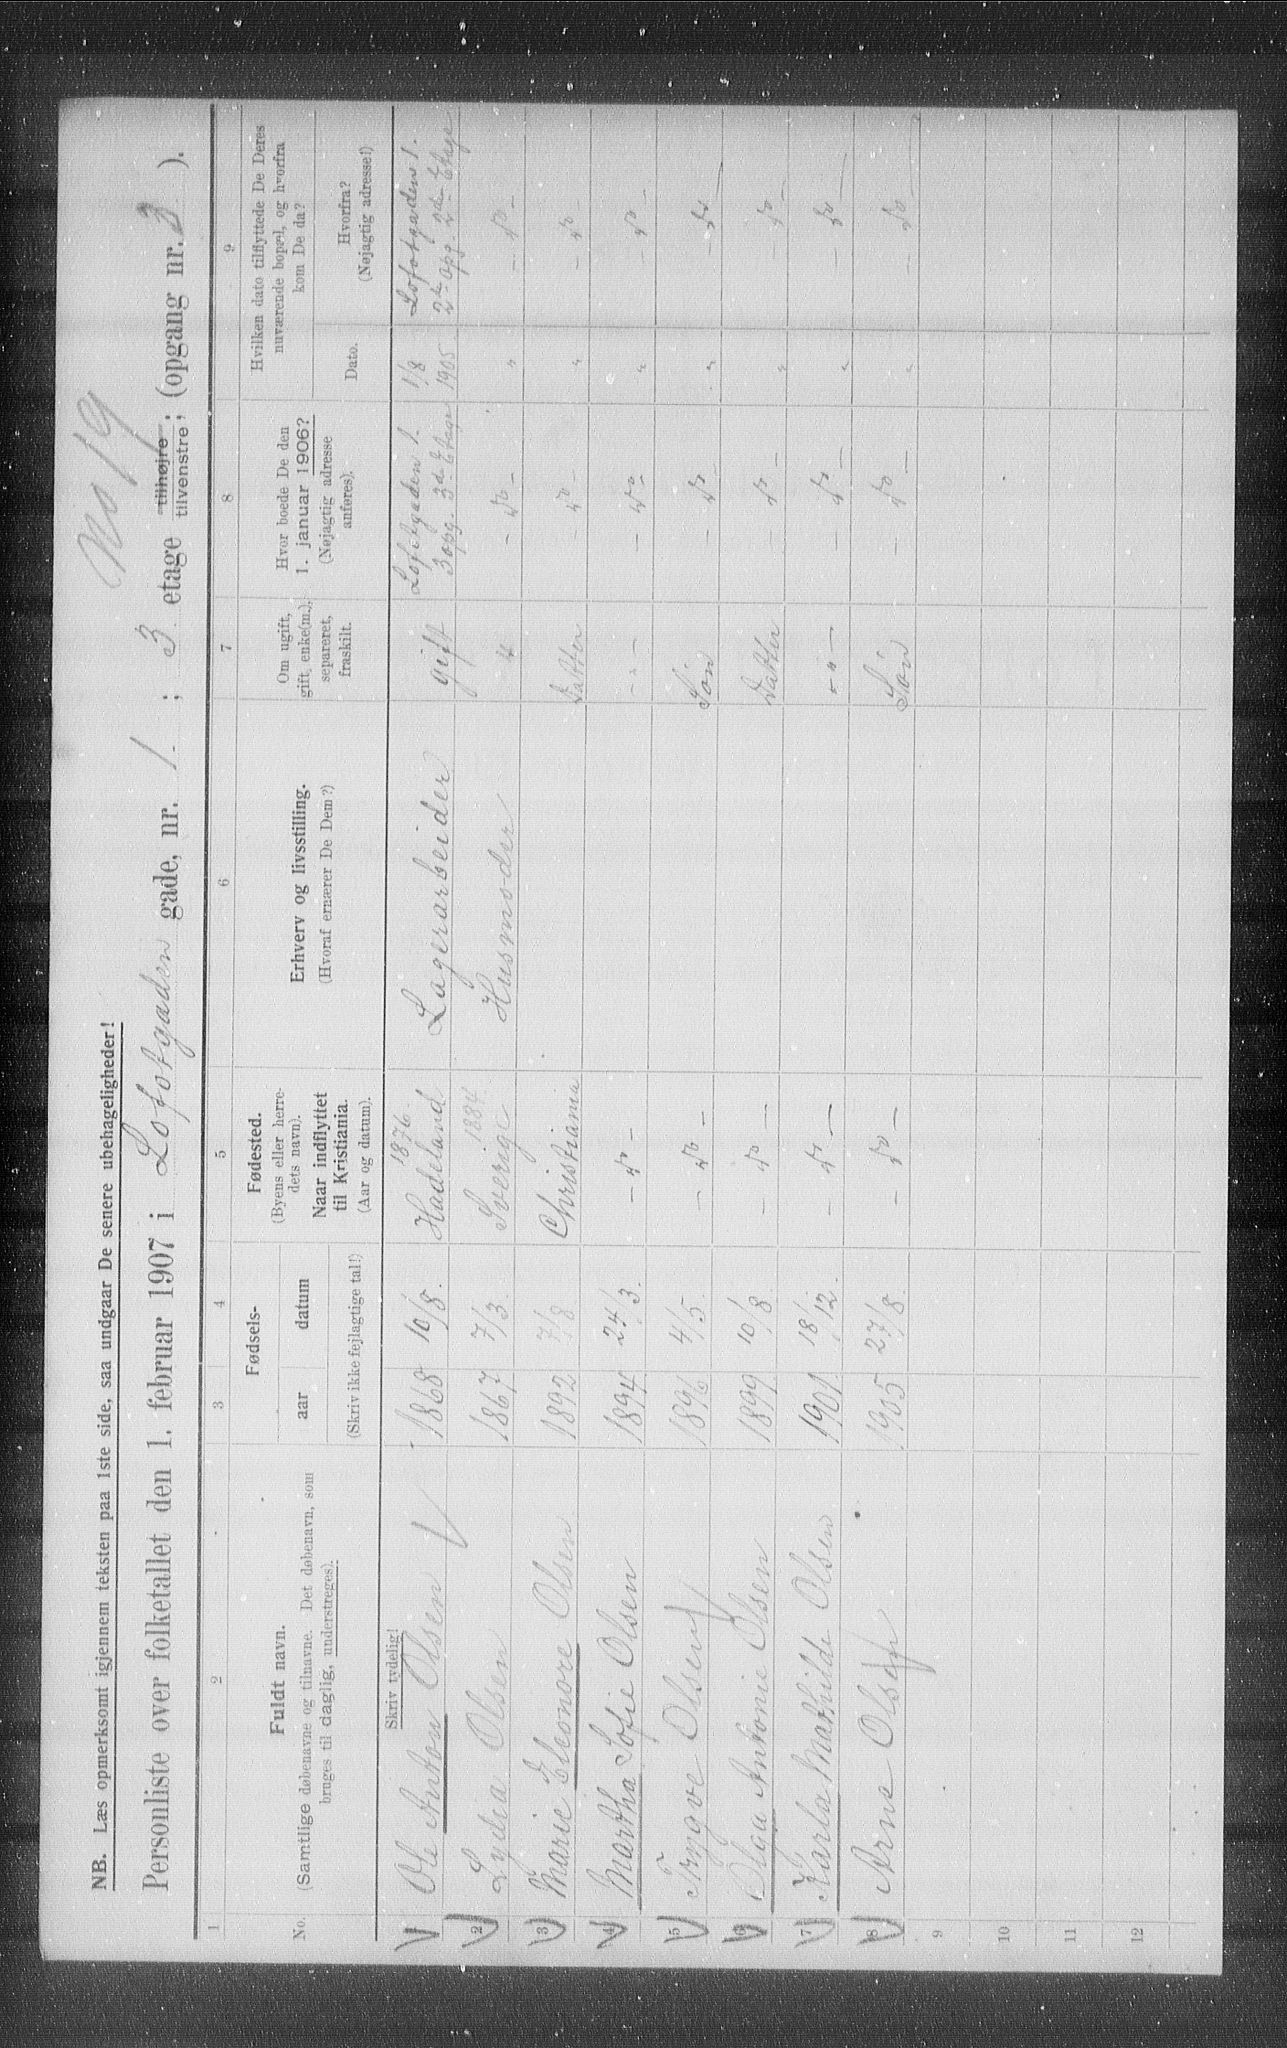 No 19
NB. Læs opmerksomt igjennem teksten paa 1ste side, saa undgaar De senere ubehageligheder!
Personliste over folketallet den 1. februar 1907 i Lofotgaden gade, nr. 1. ; 3 etage tilhøjre, tilvenstre; (opgang nr. 3 ).
1 2 3 4 5 6 7 8 9
No.
Fuldt navn.
(Samtlige døbenavne og tilnavne. Det døbenavn, som
bruges til daglig, understreges).
Skriv tydelig!
Fødsels-
aar datum
(Skriv ikke fejlagtige tal!)
Fødested.
(Byens eller herre-
dets navn).
Naar indflyttet
til Kristiania.
(Aar og datum).
Erhverv og livsstilling.
(Hvoraf ernærer De Dem?)
Om ugift,
gift, enke(m.),
separeret,
fraskilt.
Hvor boede De den
1. januar 1906?
(Nøjagtig adresse
anføres).
Hvilken dato tilflyttede De Deres
nuværende bopæl, og hvorfra
kom De da?
Dato.
Hvorfra?
(Nøjagtig adresse!)
1 Ole Anton Olsen 1868 10/8. Hadeland 1876 Lagerarbeider gift Lofotgaden 1. 3 opg. 3de Etage 1/8 1905. Lofotgaden 1. 2de opg. 2de Etage
2 Lydia Olsen 1867 7/3. Sverige 1884 Husmoder " - do - " - do -
3 Marie Eleonore Olsen 1892 7/8. Christiania Datter - do - " - do -
4 Martha Sofie Olsen 1894 24/3. - do - - " - - do - " - do -
5 Trygve Olsen 1896 4/5. - do - Søn - do " - do -
6 Olga Antonie Olsen 1899 10/8. - do - Datter - do - " - do -
7 Karla Mathilde Olsen 1901 18/12. - do - - " - - do - " - do -
8 Arne Olsen 1905 27/8. - do - Søn - do - " - do -
9
10
11
12